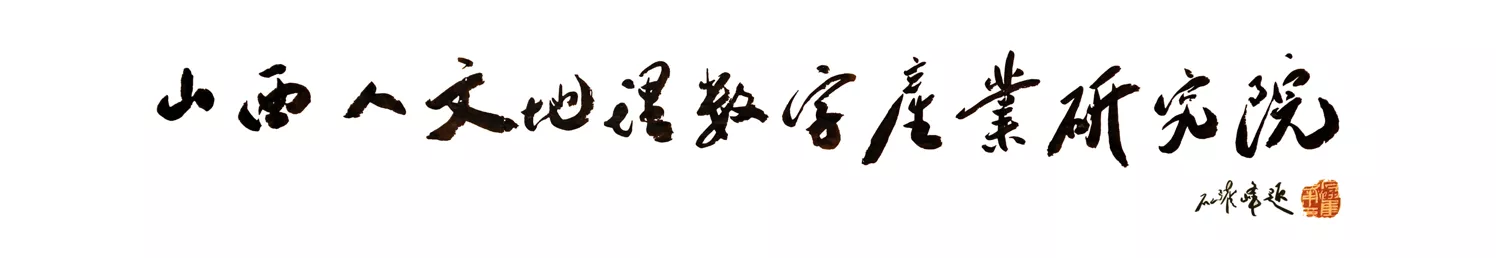 山西人文地理数字產業研究院